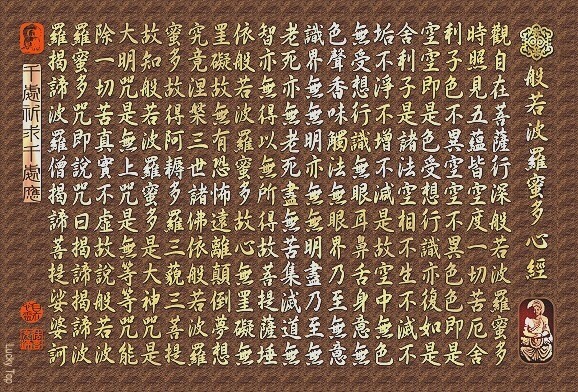 般若波羅蜜多心經
觀自在菩薩行深般若波羅蜜多
時照見五蘊皆空度一切苦厄舍
利子色不異空空不異色色即是
空空即是色受想行識亦復如是
舍利子是諸法空相不生不滅不
垢不淨不增不減是故空中無色
無受想行識無眼耳鼻舌身意無
色聲香味觸法無眼界乃至無意
識界無無明亦無無明盡乃至無
老死亦無老死盡無苦集滅道無
智亦無得以無所得故菩提薩埵
依般若波羅蜜多故心無罣礙無
罣礙故無有恐怖遠離顛倒夢想
究竟涅槃三世諸佛依般若波羅
蜜多故得阿耨多羅三藐三菩提
故知般若波羅蜜多是大神咒是
大明咒是無上咒是無等等咒能
除一切苦真實不虛故說般若波
羅蜜多咒即說咒曰揭諦揭諦波
羅揭諦波羅僧揭諦菩提娑婆訶
千處祈求千處應